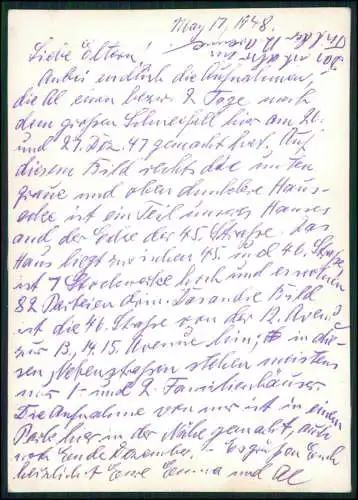 May 17, 1948.
Liebe Eltern!
Anbei endlich die Aufnahmen,
die Al einen bezw. 2 Tage nach
dem großen Schneefall hier am 26.
und 27. Dez. 47 gemacht hat. Auf
diesem Bild rechts die unten
graue und oben dunklere Haus-
ecke ist ein Teil unseres Hauses
and der Ecke der 45. Straße. Das
Haus liegt zwischen 45. und 46. Straße,
ist 7 Stockwerke hoch und es wohnen
82 Parteien drin. Das andre Bild
ist die 46. Straße von der 12. Avenue
zur 13, 14. 15. Avenue hin; in die-
sen Nebenstraßen stehen meistens
nur 1- und 2. Familienhäuser.
Die Aufnahme von mir ist in einem
Park hier in der Nähe gemacht, auch
noch Ende Dezember. - Es grüßen Euch
herzlichst Eure Emma und Al